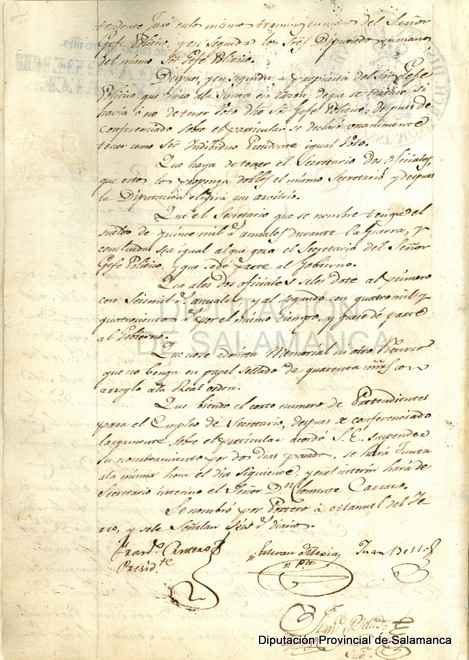 tendente juró en los mismos terminos en manos del Señor
Gefe Politico, y en seguida los Sres Diputados en manos
del mismo Sor Gefe Politico.
Despues, y en seguida a propuesta del Sor Gefe
Politico que hizo ala Junta en razon, de que se tratase si
havia o no de tener Voto dho Sor Gefe Politico, despues de
Conferenciado sobre el particular se declaró unanimemente
tener como Sor Individuo Presidente igual Voto.
Que haya de tener el Secretario dos oficiales,
que estos los proponga dobles el mismo Secretario y despues
la Diputación elegira a su arvitrio.
Que el Secretario que se nombre tenga el
sueldo de quince mil rs anuales durante la Guerra, y
concluida sea igual al que goza el Secretario del Señor
Gefe Politico, y que se dé parte al Gobierno.
Que alos dos oficiales seles dote al primero
con seis mil rs anuales, y al segundo con quatro mil y
quatrocientos rs por el mismo tiempo, y que se dé parte
al Gobierno.
Que no se admita Memorial ni otro Recurso
que no benga en papel Sellado de quarenta mrs con
arreglo ala Real orden.
Que biendo el corto numero de Pretendientes
para el Empleo de Secretario, despues de conferenciado
largamente sobre el particular acordó S.E. suspender
su nombramiento por dos dias pasados se hará Junta
ala misma hora el dia siguiente, y en el interin hará de
Secretario interino el Señor Dn Clemente Carrasco.
Se nombró por Portero a Manuel del Te-
rro, y sele Señalan Seis rs diarios.
Franco Cantero
Presidte
Estevan Mexia
Juan Bello
DIPUTACIÓN
DE SALAMANCA
Diputación Provincial de Salamanca